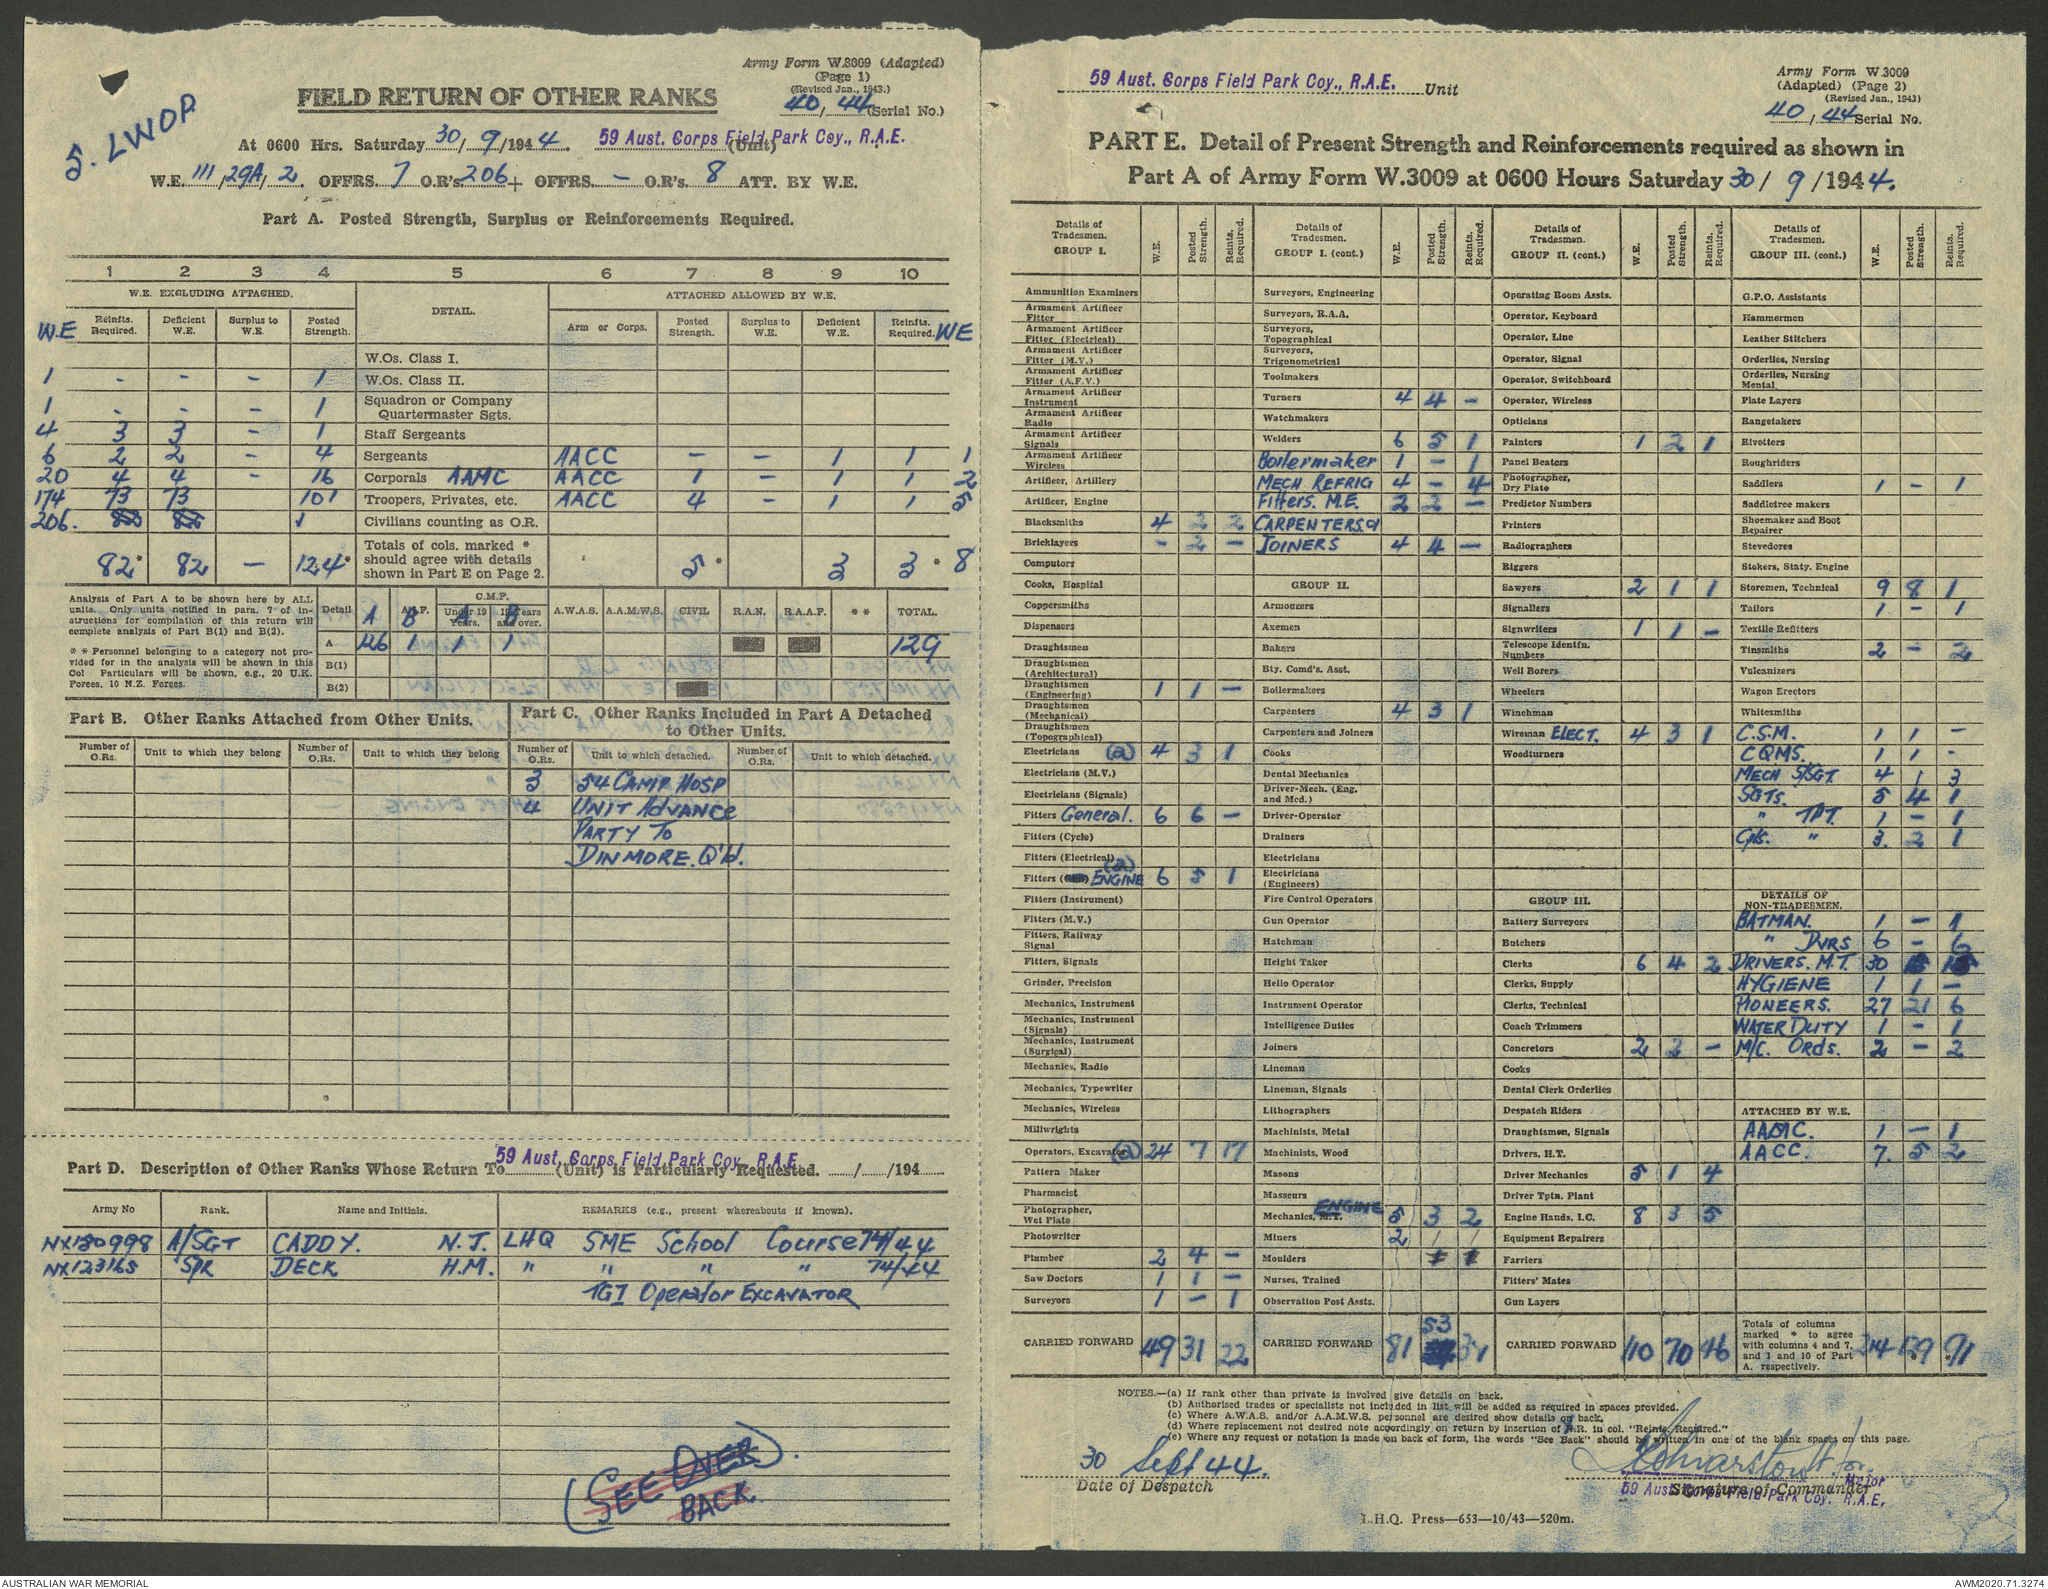 Army Form W.3009 (Adapted)
(Page 1)
(Revised Jan., 1943.)
40/44 (Serial No.)
FIELD RETURN OF OTHER RANKS
5. LWOP
At 0600 Hrs. Saturday 30/9/1944. 59 Aust. Corps Field Park Coy., R.A.E. (Unit)
W.E. 111/29A/2. OFFRS. 7 O.R's 206 + OFFRS. — O.R's. 8 ATT. BY W.E.
Part A. Posted Strength, Surplus or Reinforcements Required.
1 2 3 4 5 6 7 8 9 10
W.E. EXCLUDING ATTACHED. DETAIL. ATTACHED ALLOWED BY W.E.
W.E Reinfts. Required. Deficient W.E. Surplus to W.E. Posted Strength. Arm or Corps. Posted Strength. Surplus to W.E. Deficient W.E. Reinfts. Required. WE
W.Os. Class I.
1 - - - 1 W.Os. Class II.
1 - - - 1 Squadron or Company Quartermaster Sgts.
4 3 3 - 1 Staff Sergeants
6 2 2 - 4 Sergeants AACC - - 1 1 1
20 4 4 - 16 Corporals AAMC AACC 1 - 1 1 2
174 73 73 101 Troopers, Privates, etc. AACC 4 - 1 1 5
206. 82 82 Civilians counting as O.R.
82* 82 — 124* Totals of cols. marked * should agree with details shown in Part E on Page 2. 5* 3 3* 8
Analysis of Part A to be shown here by ALL units. Only units notified in para. 7 of instructions for compilation of this return will complete analysis of Part B(1) and B(2).
* * Personnel belonging to a category not provided for in the analysis will be shown in this Col Particulars will be shown, e.g., 20 U.K. Forces, 10 N.Z. Forces.
Detail A A.I.F. B C.M.F. Under 19 Years. A 19 Years and over. B A.W.A.S. A.A.M.W.S. CIVIL R.A.N. R.A.A.F. * * TOTAL.
A 126 1 1 1 129
B(1)
B(2)
Part B. Other Ranks Attached from Other Units.
Part C. Other Ranks Included in Part A Detached to Other Units.
Number of O.Rs. Unit to which they belong Number of O.Rs. Unit to which they belong Number of O.Rs. Unit to which detached. Number of O.Rs. Unit to which detached.
3 54 CAMP HOSP
4 UNIT ADVANCE
PARTY TO
DINMORE. Q'ld.
Part D. Description of Other Ranks Whose Return To 59 Aust. Corps Field Park Coy., R.A.E. (Unit) is Particularly Requested. / /194
Army No Rank. Name and Initials. REMARKS (e.g., present whereabouts if known).
NX130998 A/SGT CADDY. N.J. LHQ SME School Course 74/44
NX123165 SPR DECK H.M. " " " " 74/44
TGI Operator EXCAVATOR
(SEE OVER).
BACK
59 Aust. Corps Field Park Coy., R.A.E. Unit
Army Form W.3009
(Adapted) (Page 2)
(Revised Jan., 1943)
40/44 Serial No.
PART E. Detail of Present Strength and Reinforcements required as shown in
Part A of Army Form W.3009 at 0600 Hours Saturday 30/9/1944.
Details of Tradesmen. GROUP I. W.E. Posted Strength. Reints. Required.
Ammunition Examiners
Armament Artificer Fitter
Armament Artificer Fitter (Electrical)
Armament Artificer Fitter (M.V.)
Armament Artificer Fitter (A.F.V.)
Armament Artificer Instrument
Armament Artificer Radio
Armament Artificer Signals
Armament Artificer Wireless
Artificer, Artillery
Artificer, Engine
Blacksmiths 4 2 2
Bricklayers - 2 -
Computors
Cooks, Hospital
Coppersmiths
Dispensers
Draughtsmen
Draughtsmen (Architectural)
Draughtsmen (Engineering) 1 1 -
Draughtsmen (Mechanical)
Draughtsmen (Topographical)
Electricians (a) 4 3 1
Electricians (M.V.)
Electricians (Signals)
Fitters General. 6 6 -
Fitters (Cycle)
Fitters (Electrical)
Fitters (a) ENGINE 6 5 1
Fitters (Instrument)
Fitters (M.V.)
Fitters, Railway Signal
Fitters, Signals
Grinder, Precision
Mechanics, Instrument
Mechanics, Instrument (Signals)
Mechanics, Instrument (Surgical)
Mechanics, Radio
Mechanics, Typewriter
Mechanics, Wireless
Millwrights
Operators, Excavator (a) 24 7 17
Pattern Maker
Pharmacist
Photographer, Wet Plate
Photowriter
Plumber 2 4 -
Saw Doctors 1 1 -
Surveyors 1 - 1
CARRIED FORWARD 49 31 22
Details of Tradesmen. GROUP I. (cont.) W.E. Posted Strength. Reints. Required.
Surveyors, Engineering
Surveyors, R.A.A.
Surveyors, Topographical
Surveyors, Trigonometrical
Toolmakers
Turners 4 4 -
Watchmakers
Welders 6 5 1
Boilermaker 1 - 1
MECH REFRIG 4 - 4
Fitters. M.E. 2 2 -
CARPENTERS &
JOINERS 4 4 -
GROUP II.
Armourers
Axemen
Bakers
Bty. Comd's. Asst.
Boilermakers
Carpenters 4 3 1
Carpenters and Joiners
Cooks
Dental Mechanics
Driver-Mech. (Eng. and Med.)
Driver-Operator
Drainers
Electricians
Electricians (Engineers)
Fire Control Operators
Gun Operator
Hatchman
Height Taker
Helio Operator
Instrument Operator
Intelligence Duties
Joiners
Lineman
Lineman, Signals
Lithographers
Machinists, Metal
Machinists, Wood
Masons
Masseurs
Mechanics, M.T. ENGINE 5 3 2
Miners 2 1 1
Moulders
Nurses, Trained
Observation Post Assts.
CARRIED FORWARD 81 53 31
Details of Tradesmen. GROUP II. (cont.) W.E. Posted Strength. Reints. Required.
Operating Room Assts.
Operator, Keyboard
Operator, Line
Operator, Signal
Operator, Switchboard
Operator, Wireless
Opticians
Painters 1 2 1
Panel Beaters
Photographer, Dry Plate
Predictor Numbers
Printers
Radiographers
Riggers
Sawyers 2 1 1
Signallers
Signwriters 1 1 -
Telescope Identfn. Numbers
Well Borers
Wheelers
Winchman
Wireman ELECT. 4 3 1
Woodturners
GROUP III.
Battery Surveyors
Butchers
Clerks 6 4 2
Clerks, Supply
Clerks, Technical
Coach Trimmers
Concretors 2 2 -
Cooks
Dental Clerk Orderlies
Despatch Riders
Draughtsmen, Signals
Drivers, H.T.
Driver Mechanics 5 1 4
Driver Tptn. Plant
Engine Hands, I.C. 8 3 5
Equipment Repairers
Farriers
Fitters' Mates
Gun Layers
CARRIED FORWARD 110 70 46
Details of Tradesmen. GROUP III. (cont.) W.E. Posted Strength. Reints. Required.
G.P.O. Assistants
Hammermen
Leather Stitchers
Orderlies, Nursing
Orderlies, Nursing Mental
Plate Layers
Rangetakers
Rivetters
Roughriders
Saddlers 1 - 1
Saddletree makers
Shoemaker and Boot Repairer
Stevedores
Stokers, Staty. Engine
Storemen, Technical 9 8 1
Tailors 1 - 1
Textile Refitters
Tinsmiths 2 - 2
Vulcanizers
Wagon Erectors
Whitesmiths
C.S.M. 1 1 -
CQMS. 1 1 -
MECH S/SGT. 4 1 3
SGTS. 5 4 1
" TPT. 1 - 1
Cpls. " 3. 2 1
DETAILS OF NON-TRADESMEN.
BATMAN. 1 - 1
" DVRS 6 - 6
DRIVERS. M.T. 30 15 15
HYGIENE 1 1 -
PIONEERS. 27 21 6
WATER DUTY 1 - 1
M/C. Ords. 2 - 2
ATTACHED BY W.E.
AAMC. 1 - 1
AACC. 7. 5 2
Totals of columns marked * to agree with columns 4 and 7, and 1 and 10 of Part A. respectively. 214 129* 91*
NOTES.—(a) If rank other than private is involved give details on back.
(b) Authorised trades or specialists not included in list will be added as required in spaces provided.
(c) Where A.W.A.S. and/or A.A.M.W.S. personnel are desired show details on back.
(d) Where replacement not desired note accordingly on return by insertion of N.R. in col. "Reints. Required."
(e) Where any request or notation is made on back of form, the words "See Back" should be written in one of the blank spaces on this page.
30 Sept 44.
Date of Despatch
for Major
Signature of Commander
59 Aust. Corps Field Park Coy. R.A.E.
L.H.Q. Press—653—10/43—520m.
AUSTRALIAN WAR MEMORIAL
AWM2020.71.3274